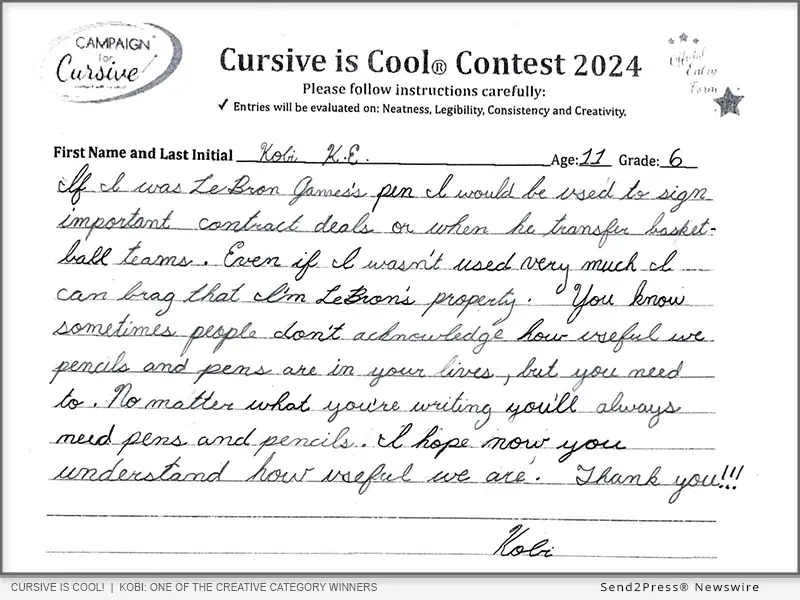 CAMPAIGN
for
Cursive
Cursive is Cool® Contest 2024
Official
Entry
Form
Please follow instructions carefully:
✓ Entries will be evaluated on: Neatness, Legibility, Consistency and Creativity.
First Name and Last Initial Kobi K.E. Age: 11 Grade: 6
If I was LeBron James's pen I would be used to sign
important contract deals or when he transfer basket-
ball teams. Even if I wasn't used very much I
can brag that I'm LeBron's property. You know
sometimes people don't acknowledge how useful we
pencils and pens are in your lives, but you need
to. No matter what you're writing you'll always
need pens and pencils. I hope now you
understand how useful we are. Thank you!!!
Kobi
CURSIVE IS COOL! | KOBI: ONE OF THE CREATIVE CATEGORY WINNERS
Send2Press® Newswire